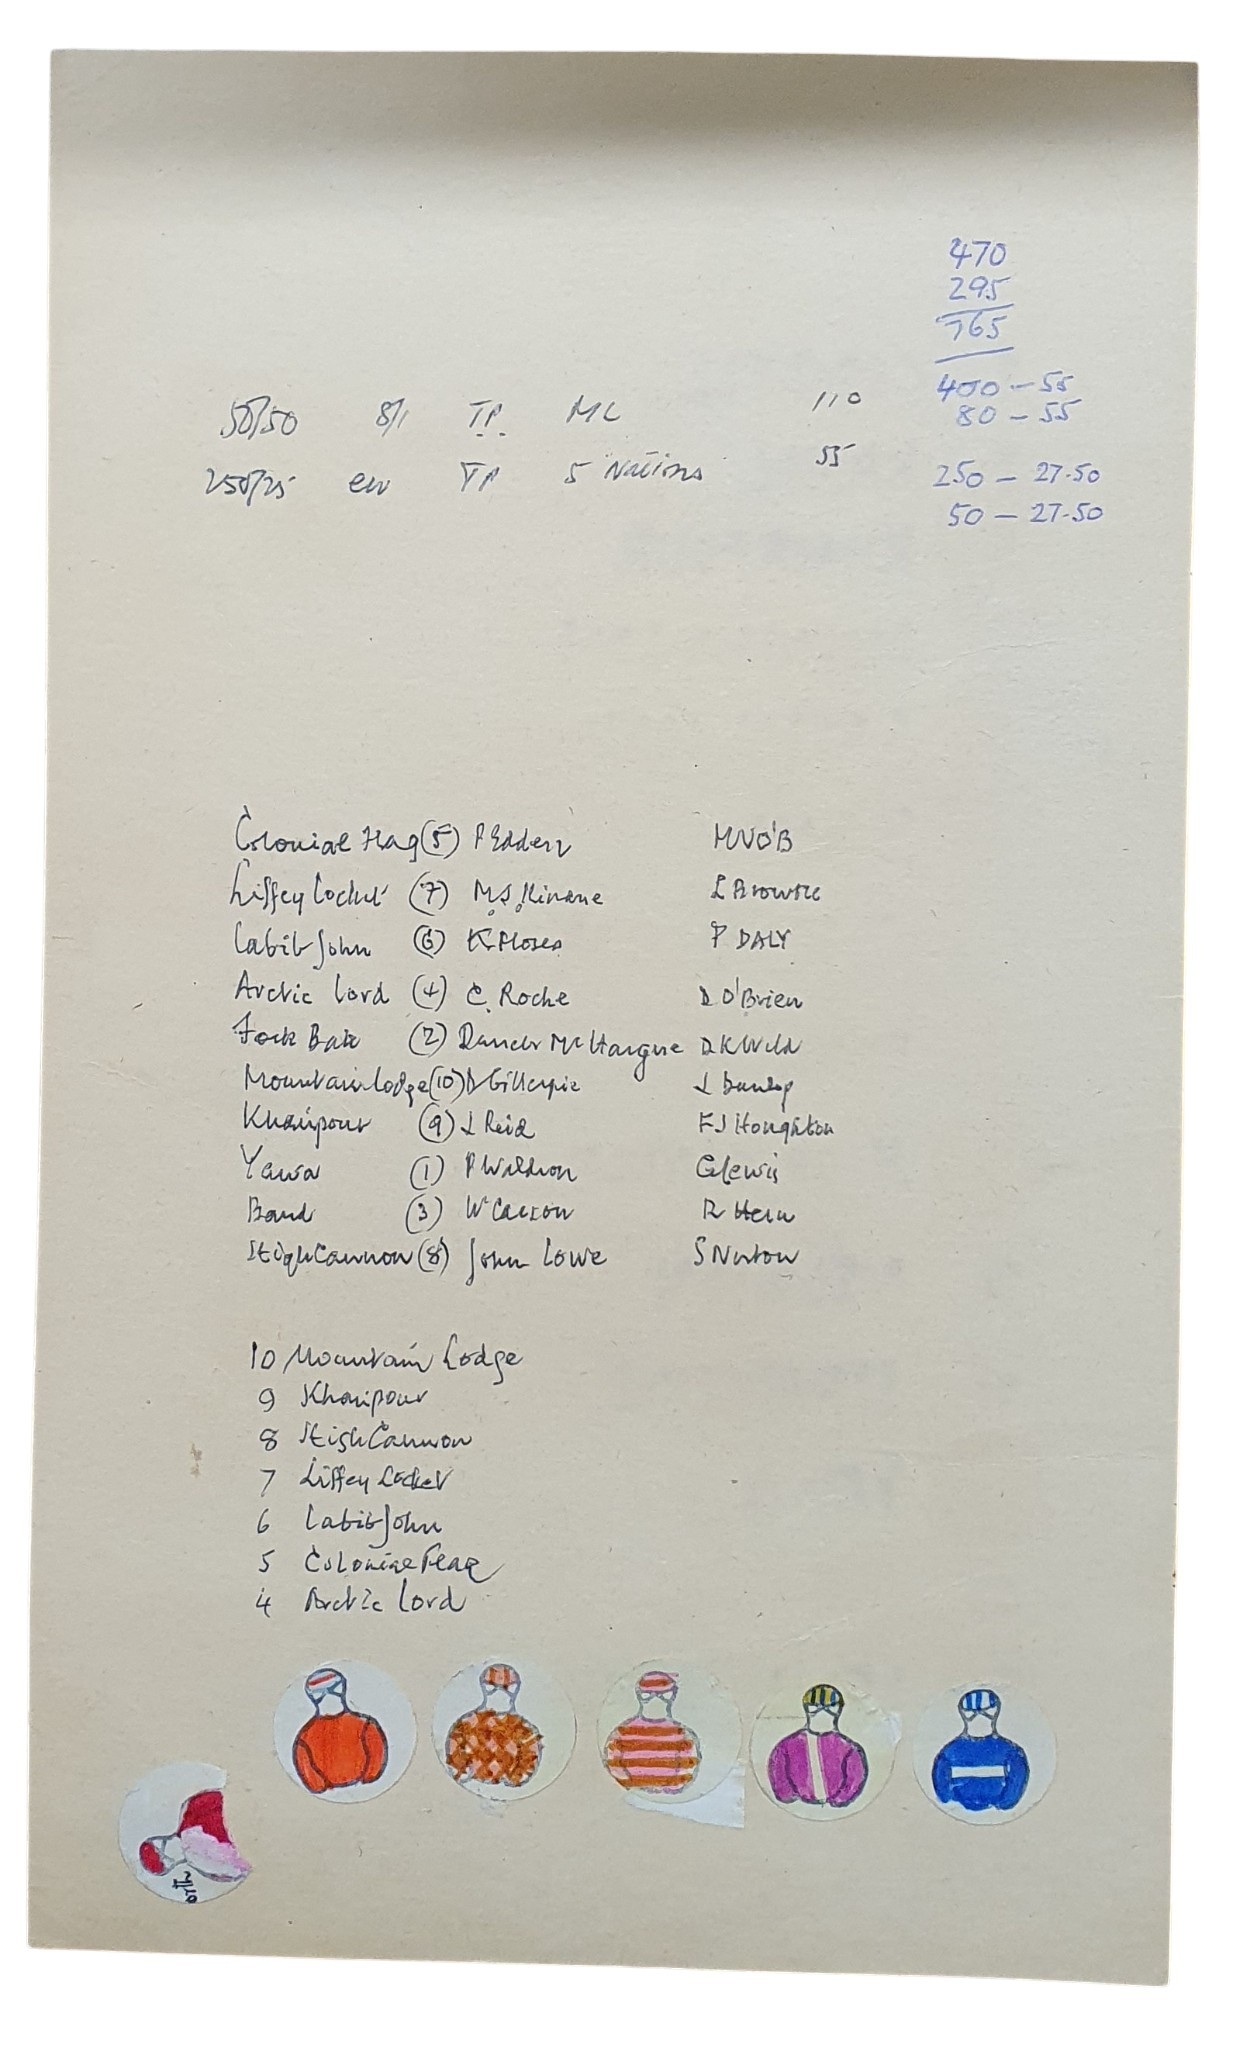 470
295
765
400 - 55
50/50 8/1 TP ML 110
80 - 55
250/25 ew TP 5 Nations 55
250 - 27.50
50 - 27.50
Colonial Flag (5) P Eddery MVO'B
Liffey Locket (7) M.J. Kinane L Browne
Labib John (6) K. Moses P DALY
Arctic Lord (4) C. Roche D O'Brien
(2) McHargue D K Weld
Mountain Lodge (10) D Gillespie J Dunlop
Khairpour (9) J Reid F J Houghton
Yawa (1) P Waldron G Lewis
Band (3) W Carson R Hern
High Cannon (8) John Lowe S Norton
10 Mountain Lodge
9 Khairpour
8 High Cannon
7 Liffey Locket
6 Labib John
5 Colonial Flag
4 Arctic Lord